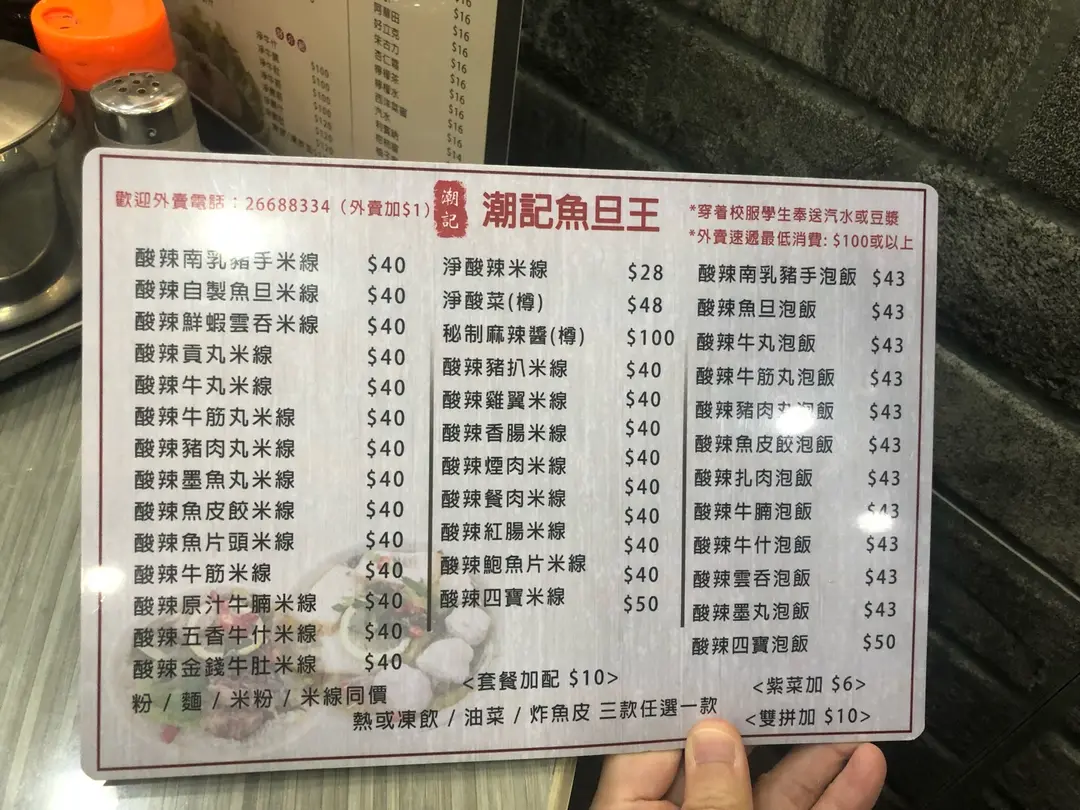 阿華田 $16
好立克 $16
朱古力 $16
杏仁霜 $16
檸檬茶 $16
檸檬水 $16
西洋菜蜜 $16
汽水 $16
$16
$14
淨牛什 $100
$100
$100
$100
$100
$120
$120
歡迎外賣電話：26688334（外賣加$1）
潮記
潮記魚旦王
*穿着校服學生奉送汽水或豆漿
*外賣速遞最低消費: $100或以上
酸辣南乳豬手米線 $40
酸辣自製魚旦米線 $40
酸辣鮮蝦雲吞米線 $40
酸辣貢丸米線 $40
酸辣牛丸米線 $40
酸辣牛筋丸米線 $40
酸辣豬肉丸米線 $40
酸辣墨魚丸米線 $40
酸辣魚皮餃米線 $40
酸辣魚片頭米線 $40
酸辣牛筋米線 $40
酸辣原汁牛腩米線 $40
酸辣五香牛什米線 $40
酸辣金錢牛肚米線 $40
粉 / 麵 / 米粉 / 米線同價
淨酸辣米線 $28
淨酸菜(樽) $48
秘制麻辣醬(樽) $100
酸辣豬扒米線 $40
酸辣雞翼米線 $40
酸辣香腸米線 $40
酸辣煙肉米線 $40
酸辣餐肉米線 $40
酸辣紅腸米線 $40
酸辣鮑魚片米線 $40
酸辣四寶米線 $50
<套餐加配 $10>
熱或凍飲 / 油菜 / 炸魚皮 三款任選一款
酸辣南乳豬手泡飯 $43
酸辣魚旦泡飯 $43
酸辣牛丸泡飯 $43
酸辣牛筋丸泡飯 $43
酸辣豬肉丸泡飯 $43
酸辣魚皮餃泡飯 $43
酸辣扎肉泡飯 $43
酸辣牛腩泡飯 $43
酸辣牛什泡飯 $43
酸辣雲吞泡飯 $43
酸辣墨丸泡飯 $43
酸辣四寶泡飯 $50
<紫菜加 $6>
<雙拼加 $10>